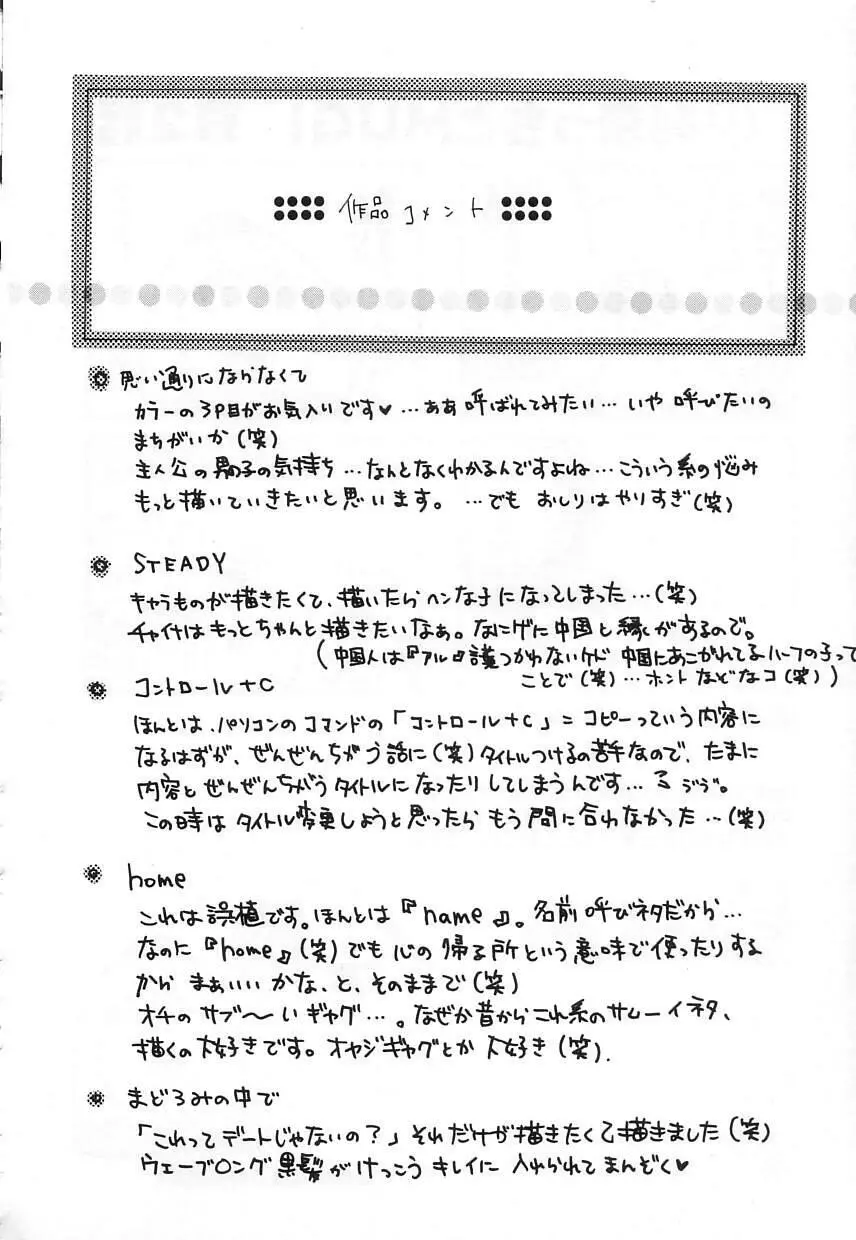 作品コメント
思い通りにならなくて
カラーの3P目がお気入りです♥…ああ呼ばれてみたい…いや呼びたいの
まちがいか(笑)
主人公の男の子の気持ち…なんとなくわかるんですよね…こういう系の悩み
もっと描いていきたいと思います。…でも おしりはやりすぎ(笑)
STEADY
キャラものが描きたくて、描いたらヘンな子になってしまった…(笑)
チャイナはもっとちゃんと描きたいなぁ。なにげに中国と縁があるので。
(中国人は『アル』語つかわないケド 中国にあこがれてるハーフの子って
ことで(笑)…ホントなどなコ(笑))
コントロール+C
ほんとは、パソコンのコマンドの「コントロール+C」=コピーっていう内容に
なるはずが、ぜんぜんちがう話に(笑)タイトルつけるの苦手なので、たまに
内容とぜんぜんちがうタイトルになったりしてしまうんです…
この時はタイトル変更しようと思ったらもう間に合わなかった…(笑)
home
これは誤植です。ほんとは『name』。名前呼びネタだから…
なのに『home』(笑)でも心の帰る所という意味で使ったりする
から まぁいいかな、と、そのままで(笑)
オチのサブ〜いギャグ…。なぜか昔からこれ系のサムーイネタ、
描くの大好きです。オヤジギャグとか大好き(笑).
まどろみの中で
「これってデートじゃないの?」それだけが描きたくて描きました(笑)
ウェーブロング黒髪がけっこうキレイに入れられてまんぞく♥